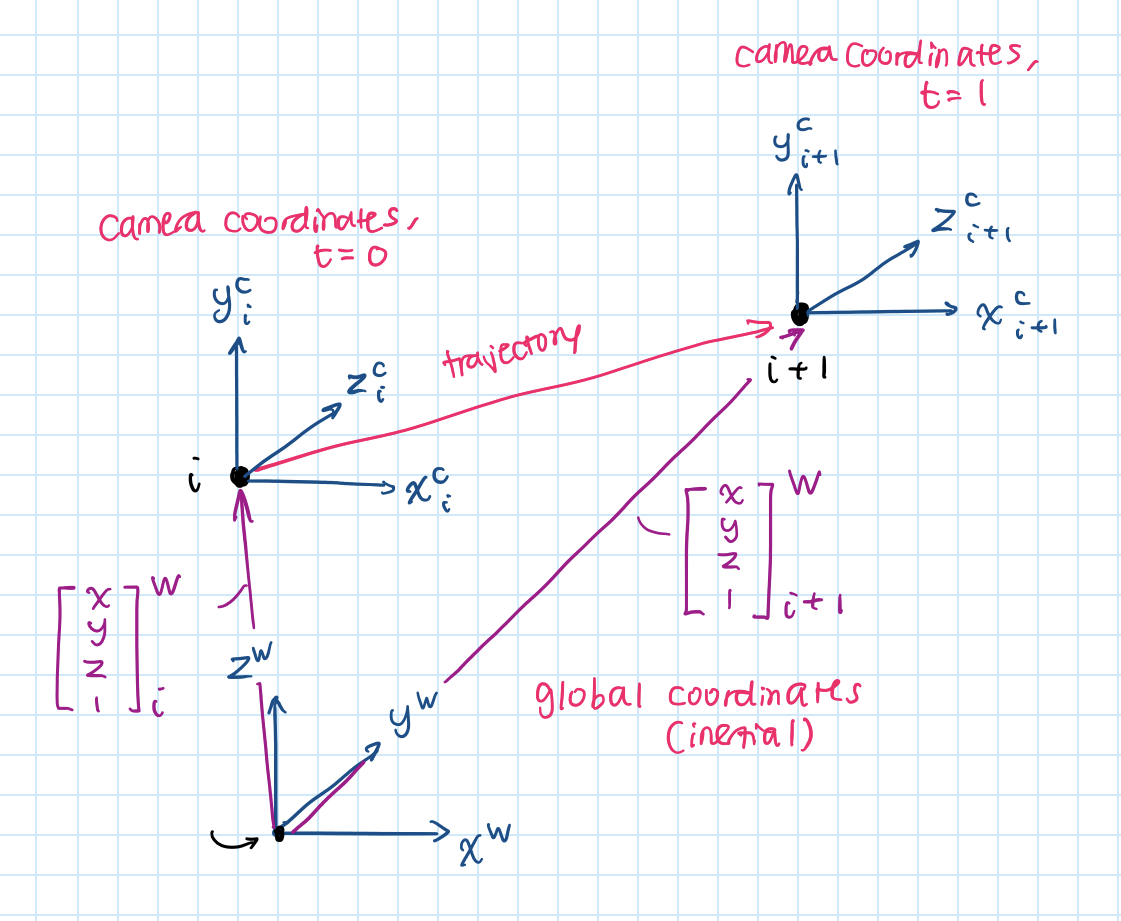 camera coordinates,
t = 1
y^c_{i+1}
z^c_{i+1}
camera coordinates,
t = 0
y^c_i
x^c_{i+1}
trajectory
i+1
z^c_i
i
x^c_i
[x y z 1]^W_{i+1}
[x y z 1]^W_i
z^W
y^W
global coordinates
(inertial)
x^W